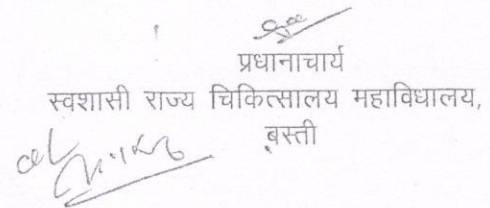 प्रधानाचार्य
स्वशासी राज्य चिकित्सालय महाविधालय,
बस्ती